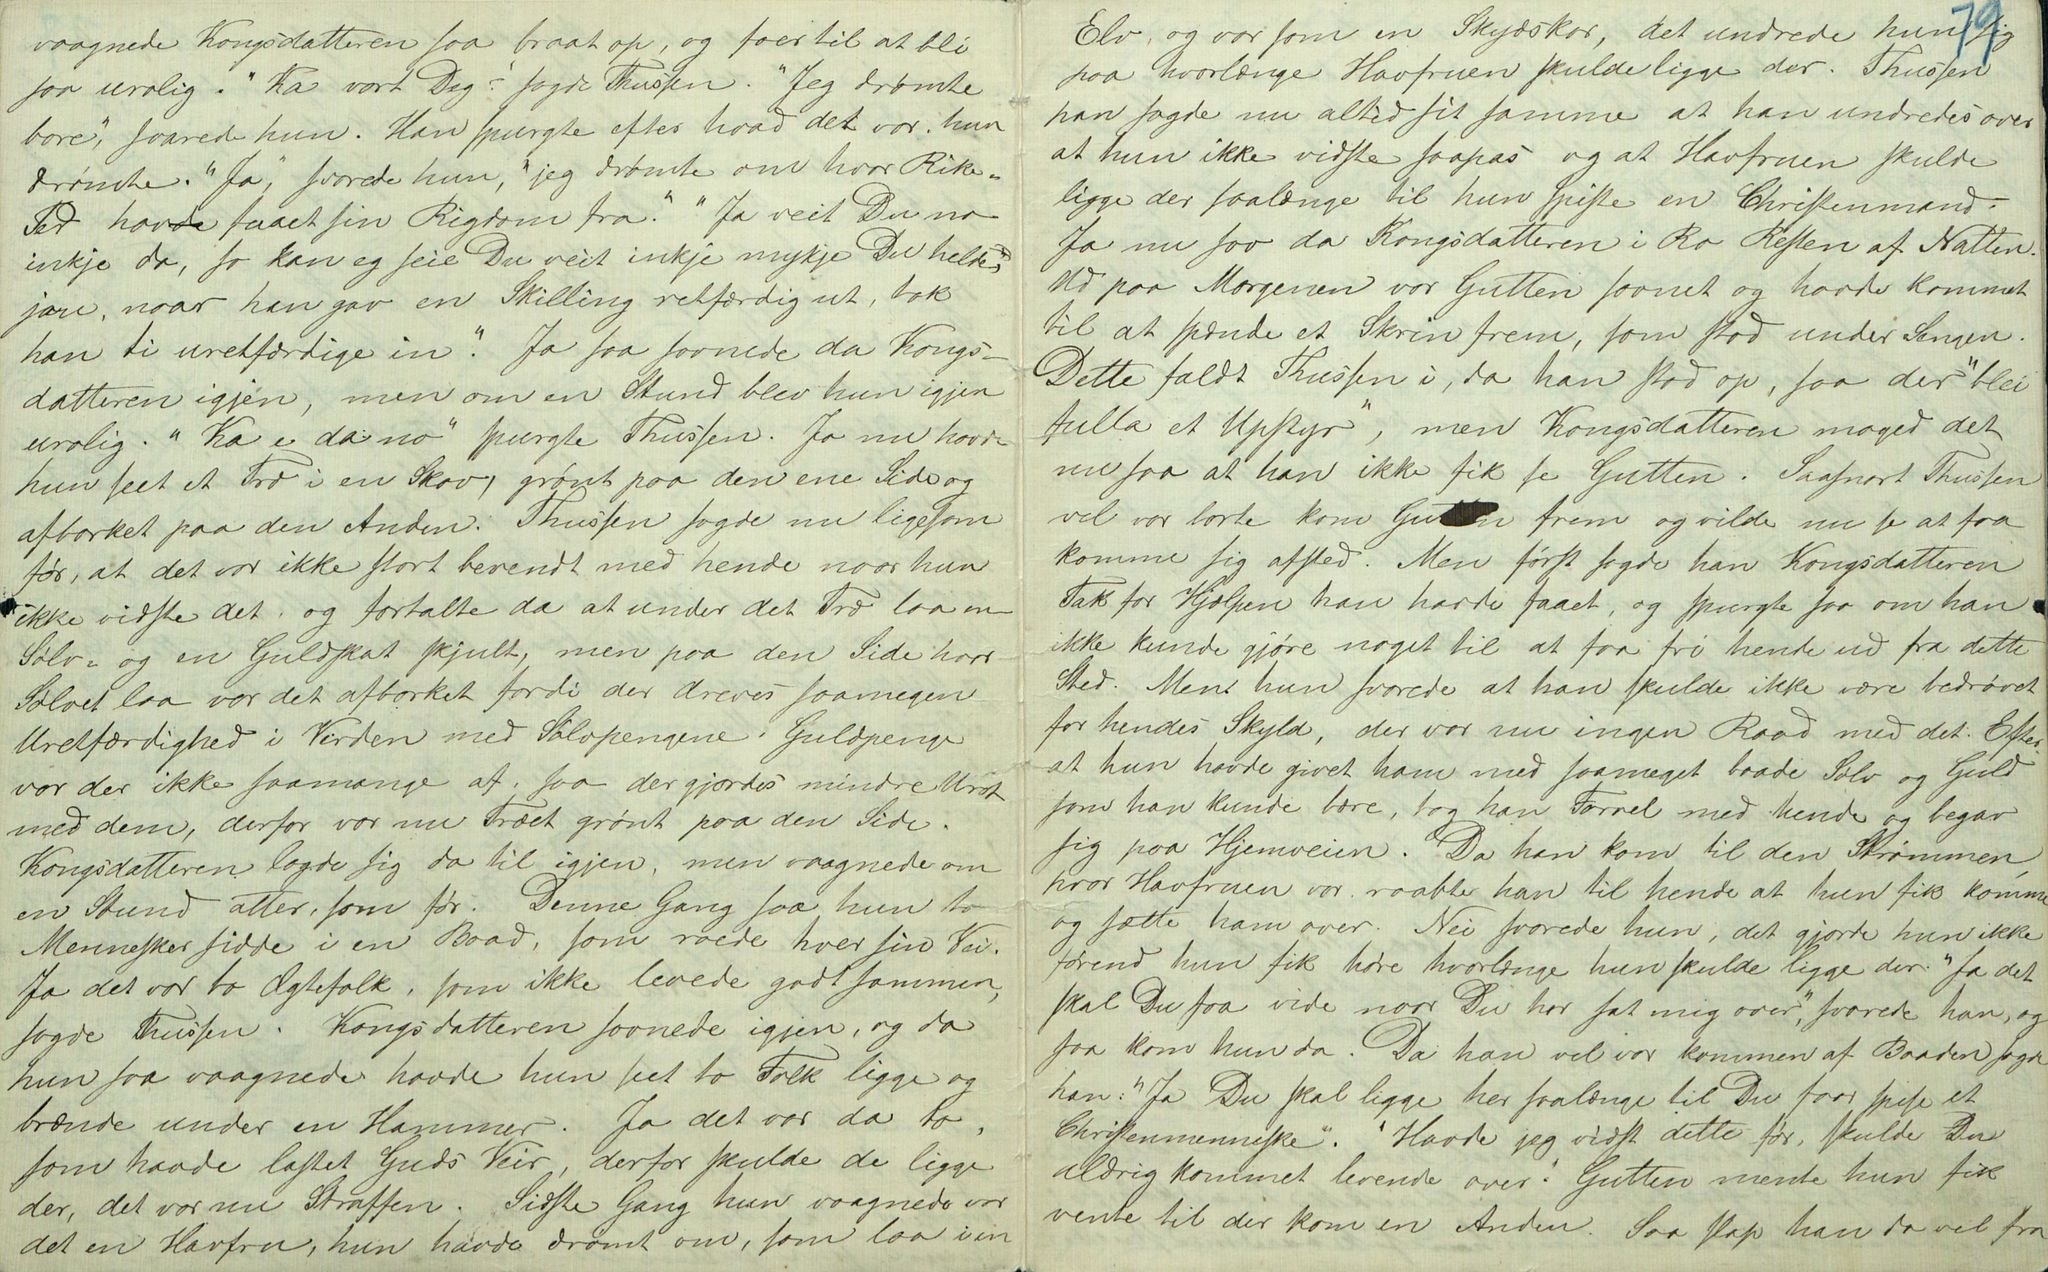 vaagnede Kongsdatteren saa braat op, og foer til at bli
saa urolig. "Ka vart Deg" sagde Thussen. "Jeg drømte
bare", svarede hun. Han spurgte efter hvad det var hun
drømte. "Ja", svarede hun, "jeg drømte om hvor Rike-
Per havde faaet sin Rigdom fra." "Ja veit Du no
inkje da, so kan eg seie Du veit inkje mykje Du heldes
jau, naar han gav en Skilling retfærdig ut, tok
han ti uretfærdige in". Ja saa sovnede da Kongs-
datteren igjen, men om en Stund blev hun igjen
urolig. "Ka e da no" spurgte Thussen. Ja nu havde
hun seet et Træ i en Skov, grønt paa den ene Side og
afbarket paa den Anden. Thussen sagde nu ligesom
før, at det var ikke stort bevendt med hende naar hun
ikke vidste det, og fortalte da at under det Træ laa en
Sølv- og en Guldskat skjult, men paa den Side hvor
Sølvet laa var det afbarket fordi der dreves saamegen
Uretfærdighed i Verden med Sølvpengene. Guldpenge
var der ikke saamange af, saa der gjordes mindre Uret
med dem, derfor var nu Træet grønt paa den Side.
Kongsdatteren lagde sig da til igjen, men vaagnede om
en Stund atter, som før. Denne Gang saa hun to
Mennesker sidde i en Baad, som roede hver sin Vei.
Ja det var to Ægtefolk, som ikke levede godt sammen,
sagde Thussen. Kongsdatteren sovnede igjen, og da
hun saa vaagnede havde hun seet to Folk ligge og
brænde under en Hammer. Ja det var da to,
som havde lastet Guds Veir, derfor skulde de ligge
der, det var nu Straffen. Sidste Gang hun vaagnede var
det en Havfru, hun havde drømt om, som laa i en
79
Elv, og var som en Skydskar, det undrede hun sig
paa hvorlænge Havfruen skulde ligge der. Thussen
han sagde nu altid sit samme at han undredes over
at hun ikke vidste saapas og at Havfruen skulde
ligge der saalænge til hun spiste en Christenmand.
Ja nu sov da Kongsdatteren i Ro Resten af Natten.
Ud paa Morgenen var Gutten sovnet og havde kommet
til at spænde et Skrin frem, som stod under Sengen.
Dette faldt Thussen i, da han stod op, saa der "blei
fulla et Upstyr", men Kongsdatteren maged det
nu saa at han ikke fik se Gutten. Saasnart Thussen
vel var borte kom Gutten frem og vilde nu se at faa
komme sig afsted. Men først sagde han Kongsdatteren
Tak for Hjælpen han havde faaet, og spurgte saa om han
ikke kunde gjøre noget til at faa fri hende ud fra dette
Sted. Men hun svarede at han skulde ikke være bedrøvet
for hendes Skyld, der var nu ingen Raad med det. Efter-
at hun havde givet ham med saameget baade Sølv og Guld
som han kunde bære, tog han Farvel med hende og begav
sig paa Hjemveien. Da han kom til den Strømmen
hvor Havfruen var raabte han til hende at hun fik komme
og sætte ham over. Nei svarede hun, det gjorde hun ikke
førend hun fik høre hvorlænge hun skulde ligge der. "Ja det
skal Du faa vide naar Du har sat mig over", svarede han, og
saa kom hun da. Da han vel var kommen af Baaden sagde
han: "Ja Du skal ligge her saalænge til Du faar spise et
Christenmenneske". "Havde jeg vidst dette før, skulde Du
aldrig kommet levende over". Gutten mente hun fik
vente til der kom en Anden. Saa slap han da vel fra